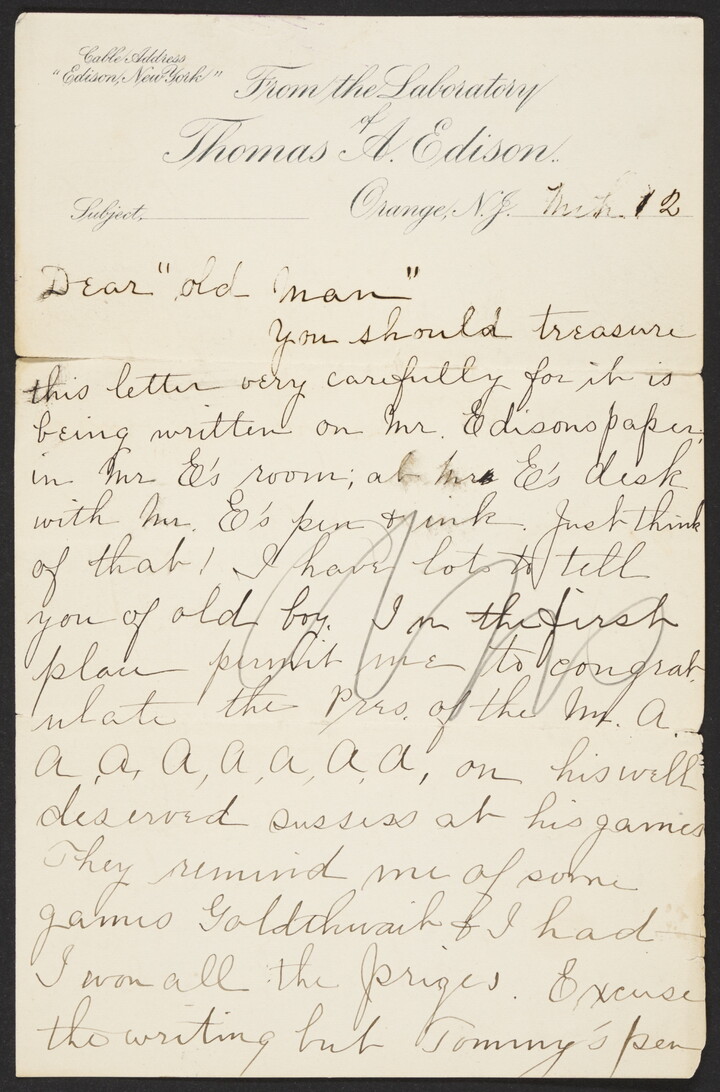 Cable Address
"Edison, New York"
From the Laboratory
of
Thomas A. Edison.
Subject,
Orange, N.J. Mch. 12
Dear "old man"
You should treasure
this letter very carefully for it is
being written on Mr. Edisons paper;
in Mr E's room; at Mr E's desk
with Mr. E's pen & ink. Just think
of that! I have lots to tell
you of old boy. In the first
place permit me to congrat
ulate the Pres. of the M. A.
A, A, A, A, A, A, A, on his well
deserved sussess at his games
They remind me of some
games Goldthwait & I had
I won all the prizes. Excuse
the writing but Tommy's pen